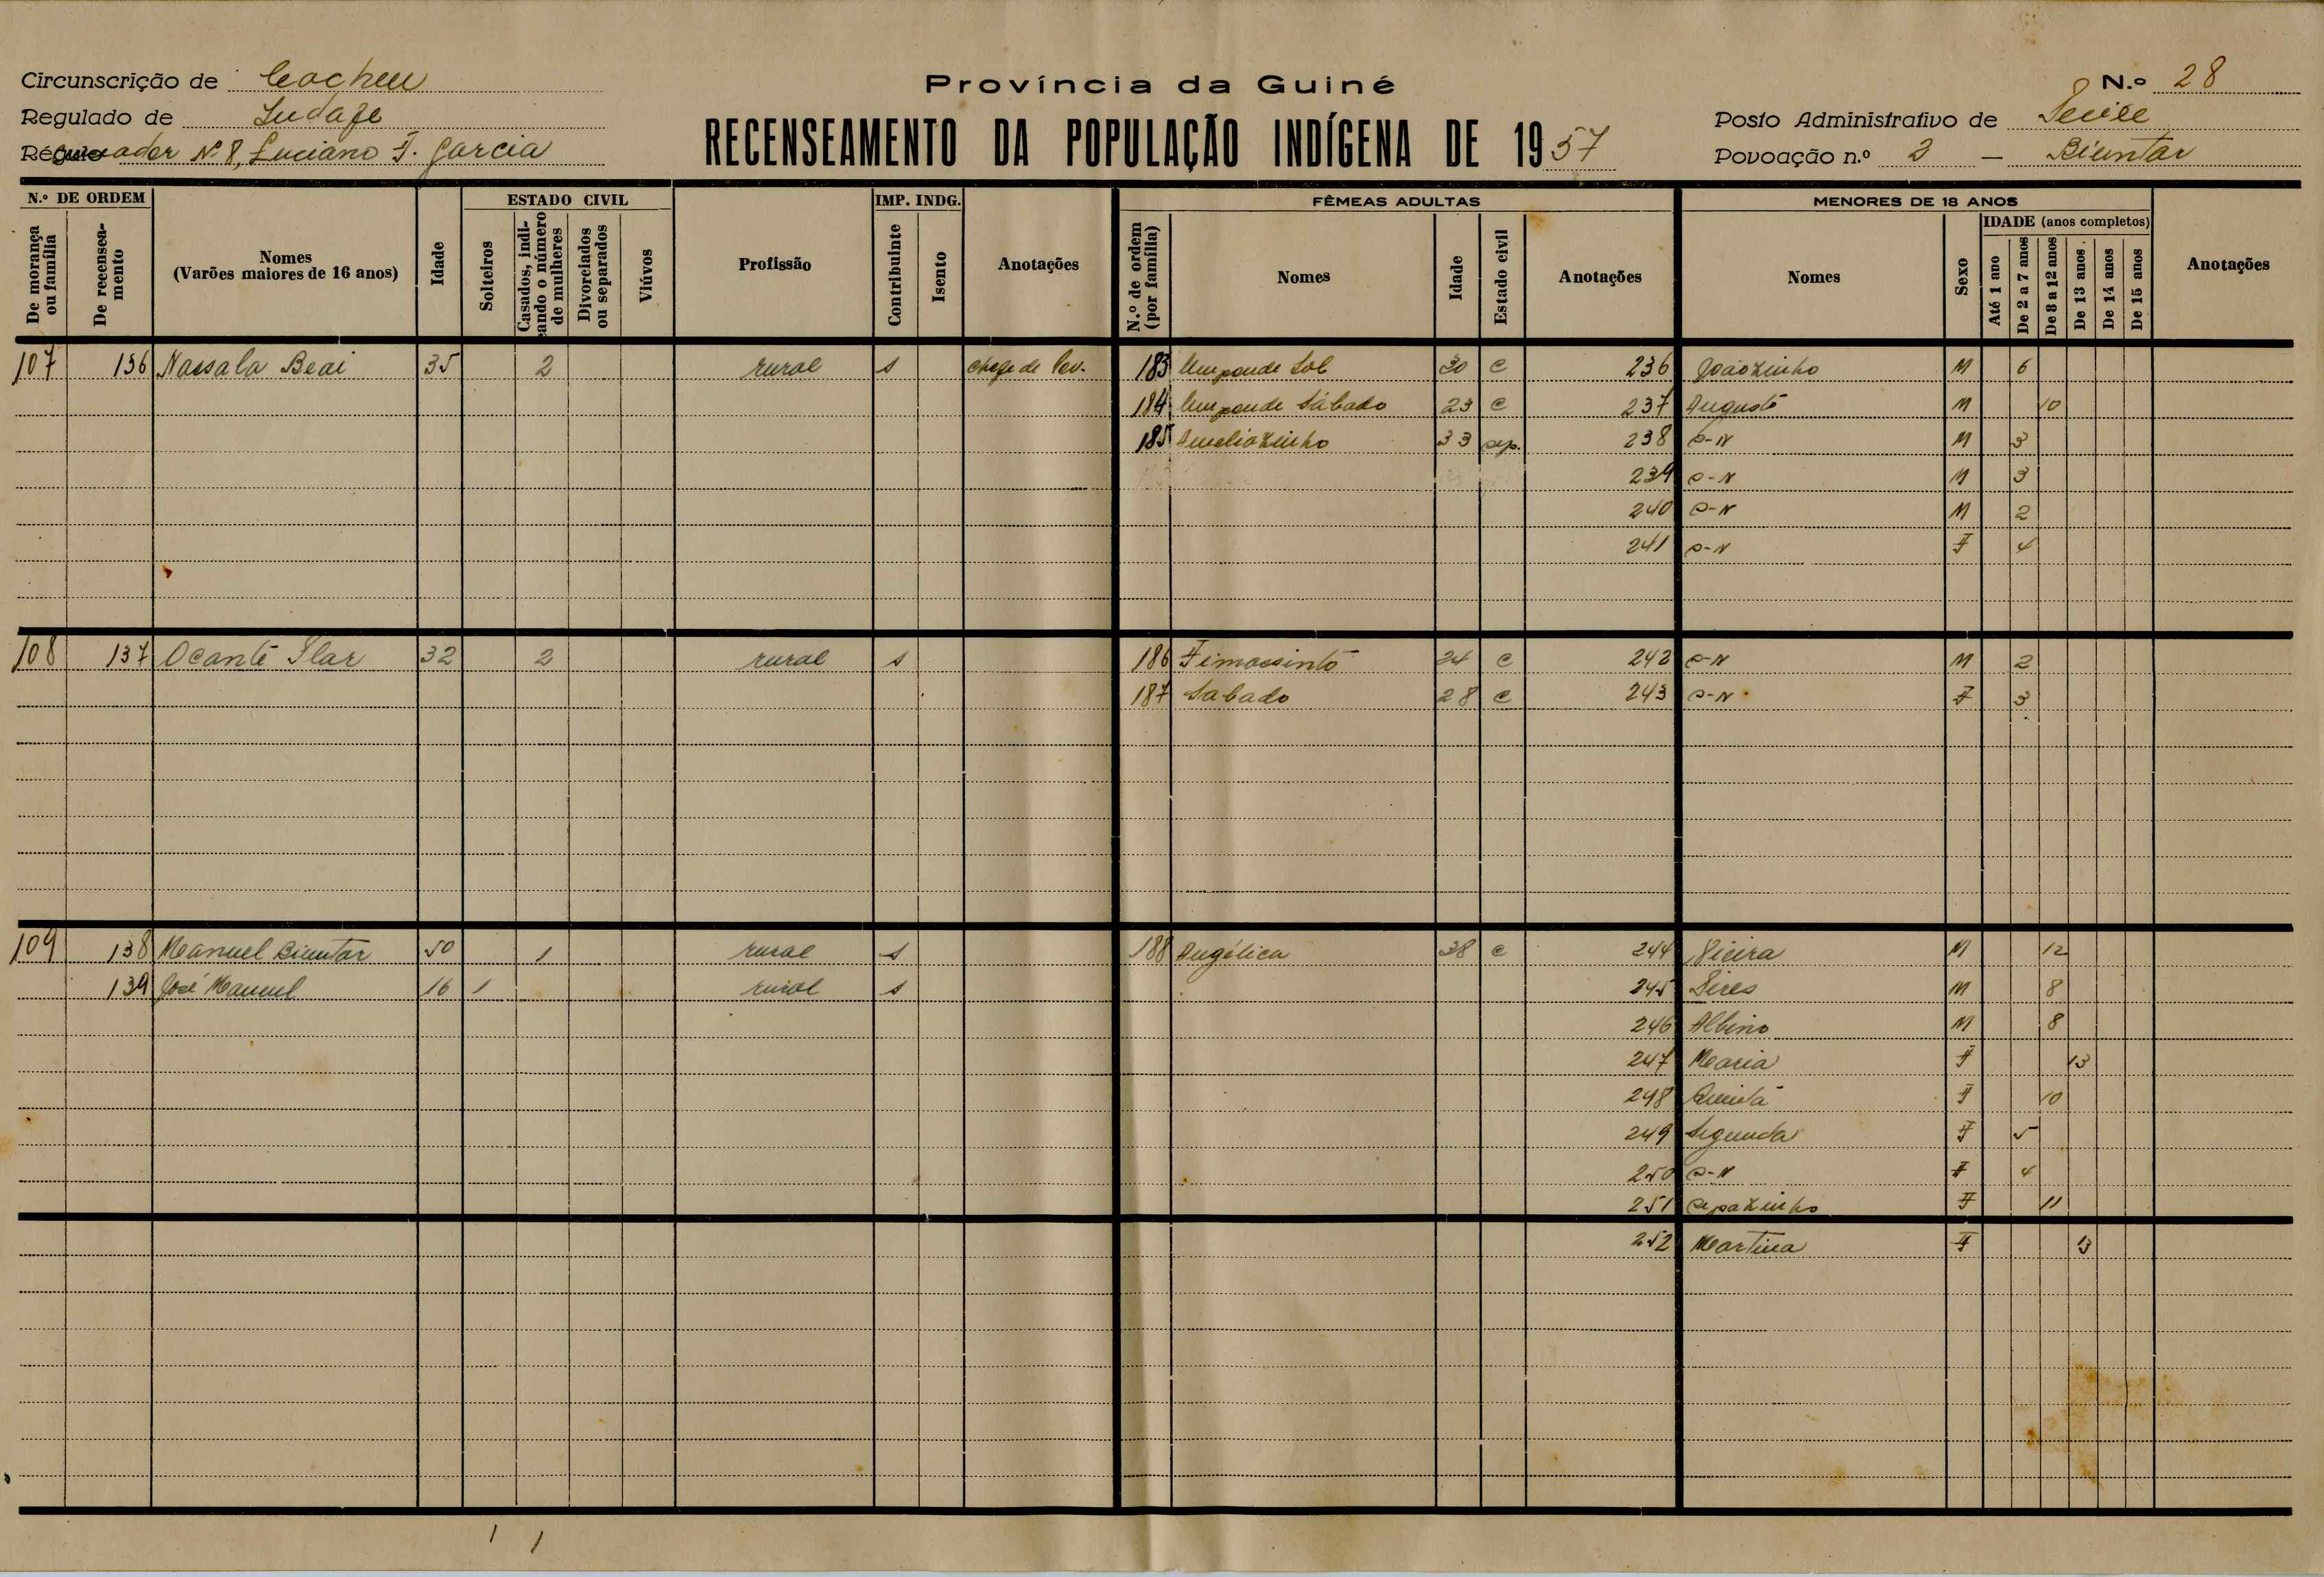 Província da Guiné
RECENSEAMENTO DA POPULAÇÃO INDÍGENA DE 1957
Circunscrição de Cacheu
Regulado de
Nº 8, Luciano F. Garcia
N.º 28
Posto Administrativo de
Povoação n.º 2 — Biuntar
N.º DE ORDEM
De morança ou família
De recenseamento
Nomes
(Varões maiores de 16 anos)
Idade
ESTADO CIVIL
Solteiros
Casados, indicando o número de mulheres
Divorciados ou separados
Viúvos
Profissão
IMP. INDG.
Contribuinte
Isento
Anotações
FÊMEAS ADULTAS
N.º de ordem (por família)
Nomes
Idade
Estado civil
Anotações
MENORES DE 18 ANOS
Nomes
Sexo
IDADE (anos completos)
Até 1 ano
De 2 a 7 anos
De 8 a 12 anos
De 13 anos
De 14 anos
De 15 anos
Anotações
107 136 Nassala Beai 35 2 rural s chefe de Pov. 183 30 c 236 Joãozinho M 6
184 Sábado 23 c 237 Augusto M 10
185 Ameliazinho 33 sep. 238 s-N M 3
239 s-N M 3
240 s-N M 2
241 s-N F 4
108 137 Ocante 32 2 rural s 186 24 c 242 s-N M 2
187 Sabado 28 c 243 s-N F 3
109 138 Manuel Biuntar 50 1 rural s 188 Angélica 38 c 244 M 12
139 José Manuel 16 1 rural s 245 M 8
246 Albino M 8
247 Maria F 13
248 Quinta F 10
249 Segunda F 5
250 s-N F 4
251 F 11
252 Martina F 13